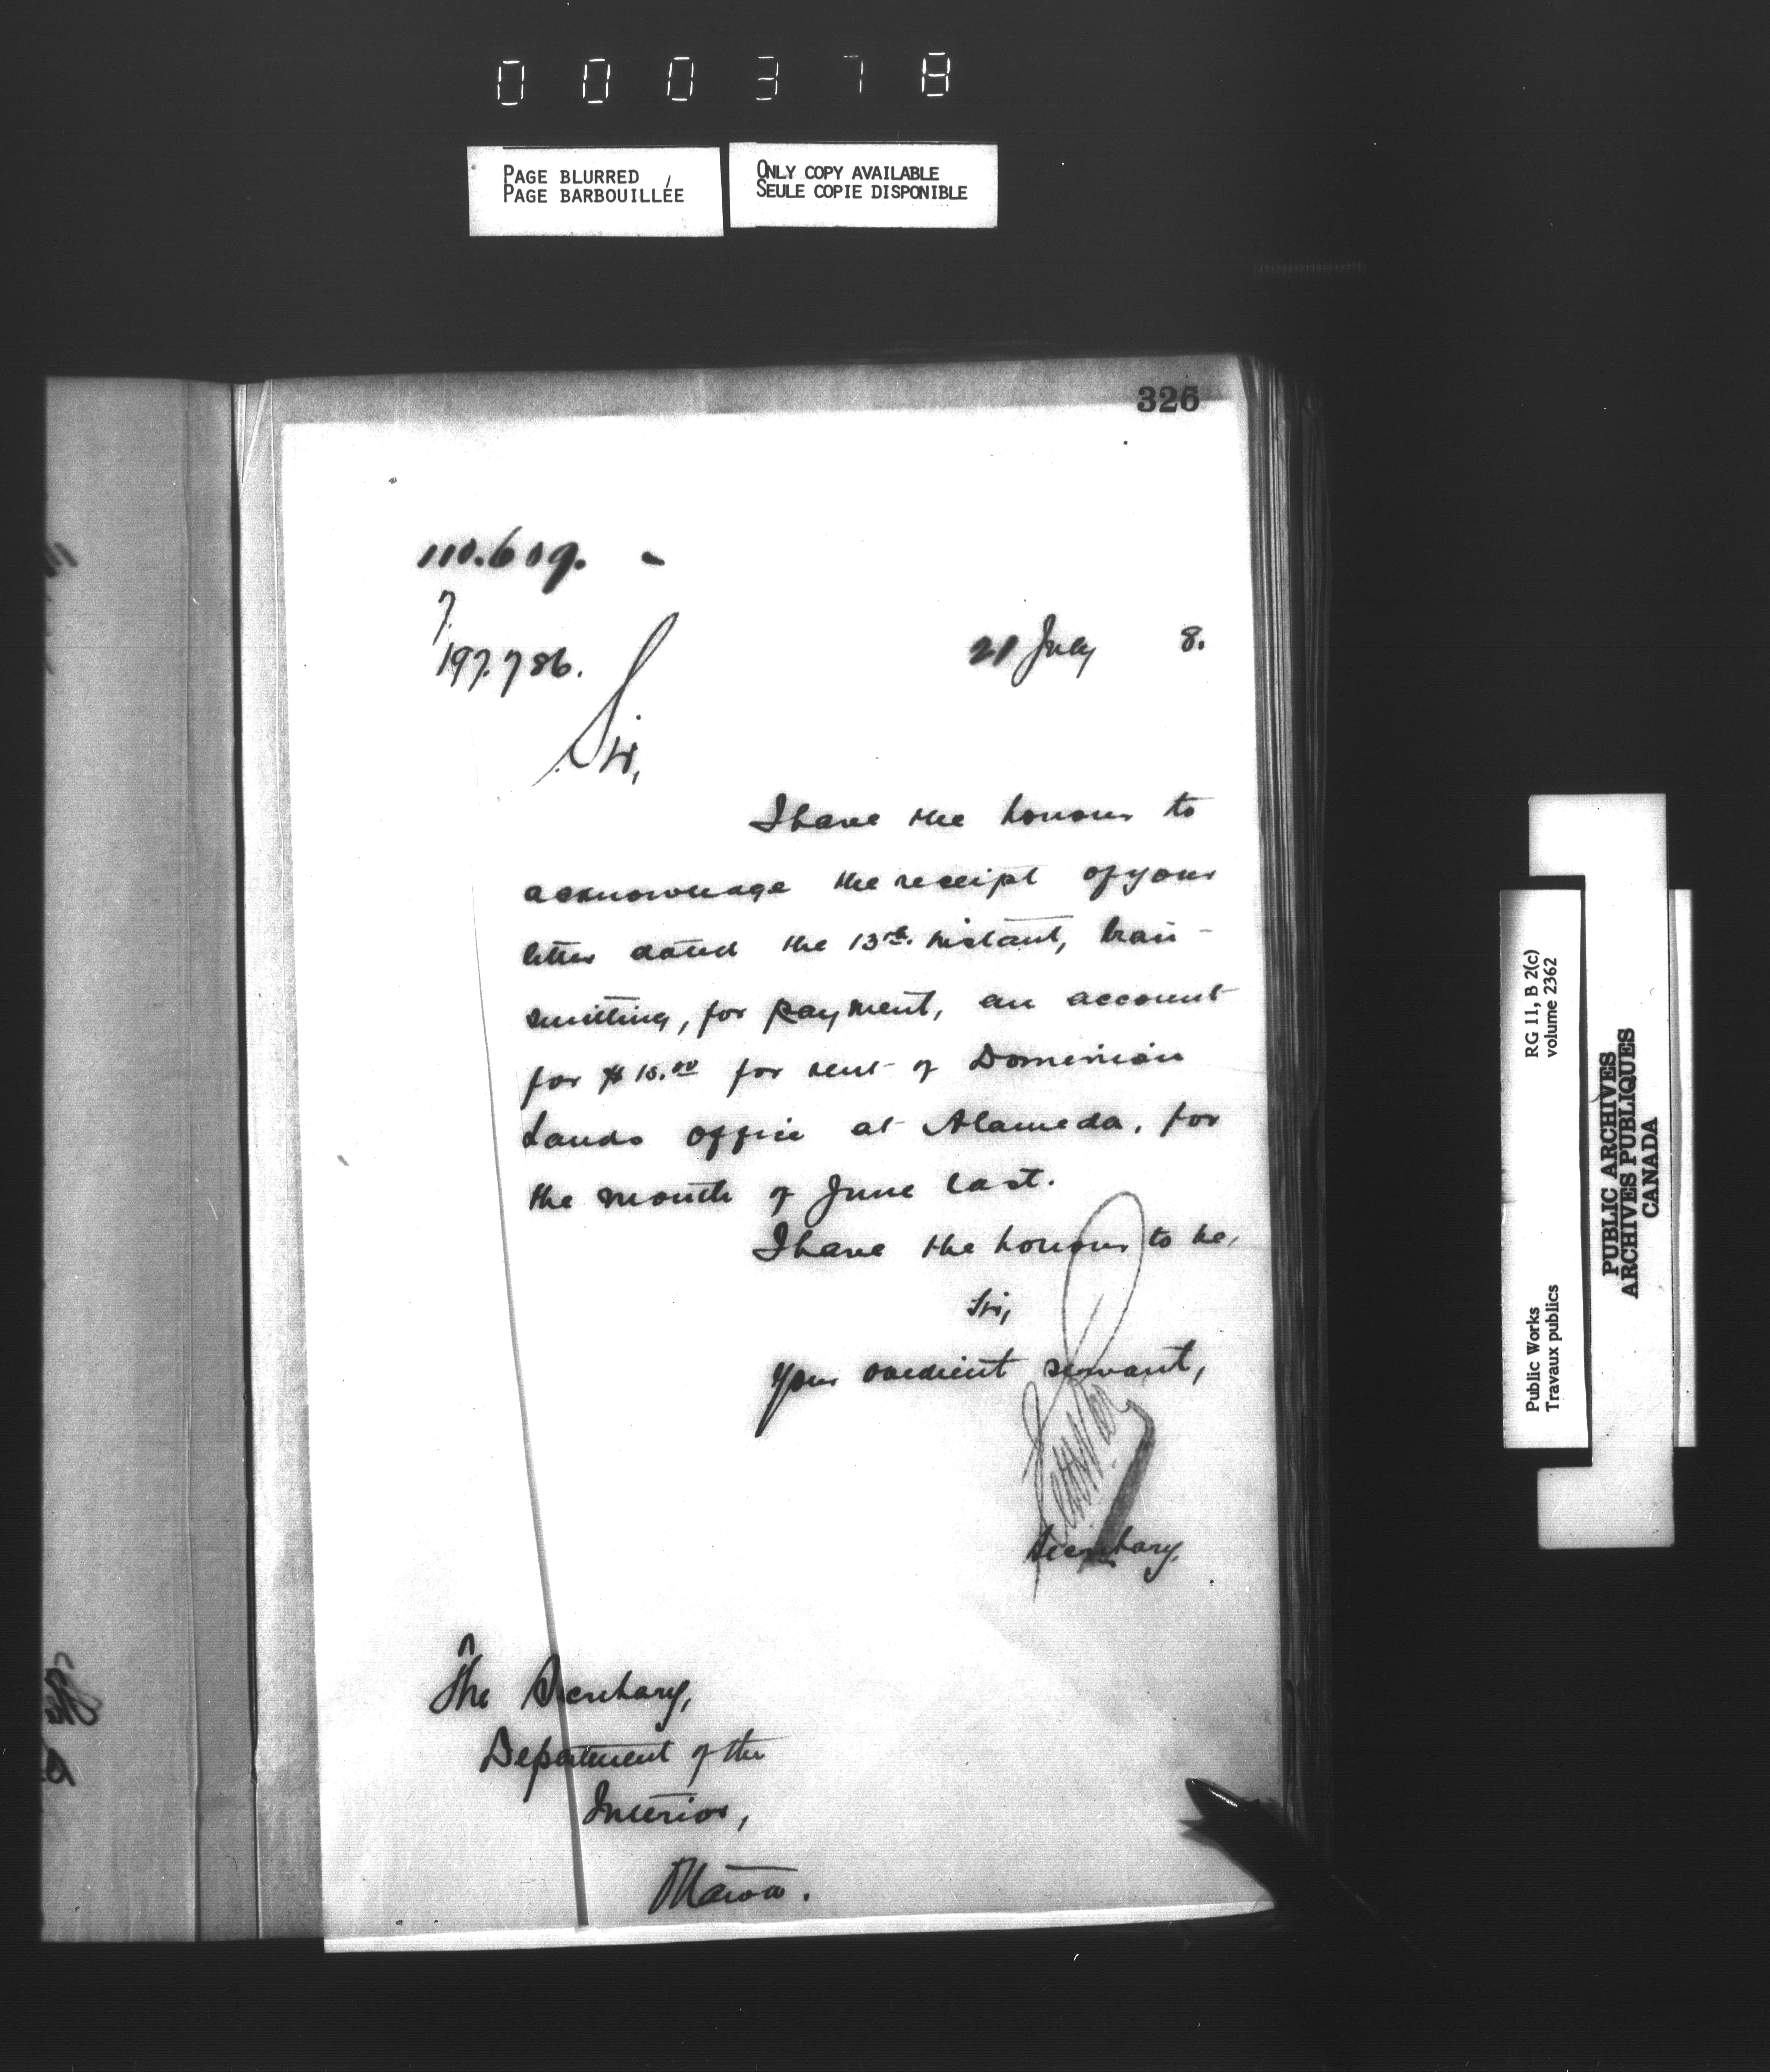 000378
PAGE BLURRED
PAGE BARBOUILLÉE
ONLY COPY AVAILABLE
SEULE COPIE DISPONIBLE
326
110.609. -
7.
197.786.
21 July 8.
Sir,
I have the honour to
acknowledge the receipt of your
letter dated the 13th. instant, tran-
smitting, for payment, an account
for $15.00 for rent of Dominion
Lands Office at Alameda, for
the month of June last.
I have the honour to be,
Sir,
Your obedient servant,
Secretary.
The Secretary,
Department of the
Interior,
Ottawa.
RG 11, B 2(c)
volume 2362
Public Works
Travaux publics
PUBLIC ARCHIVES
ARCHIVES PUBLIQUES
CANADA